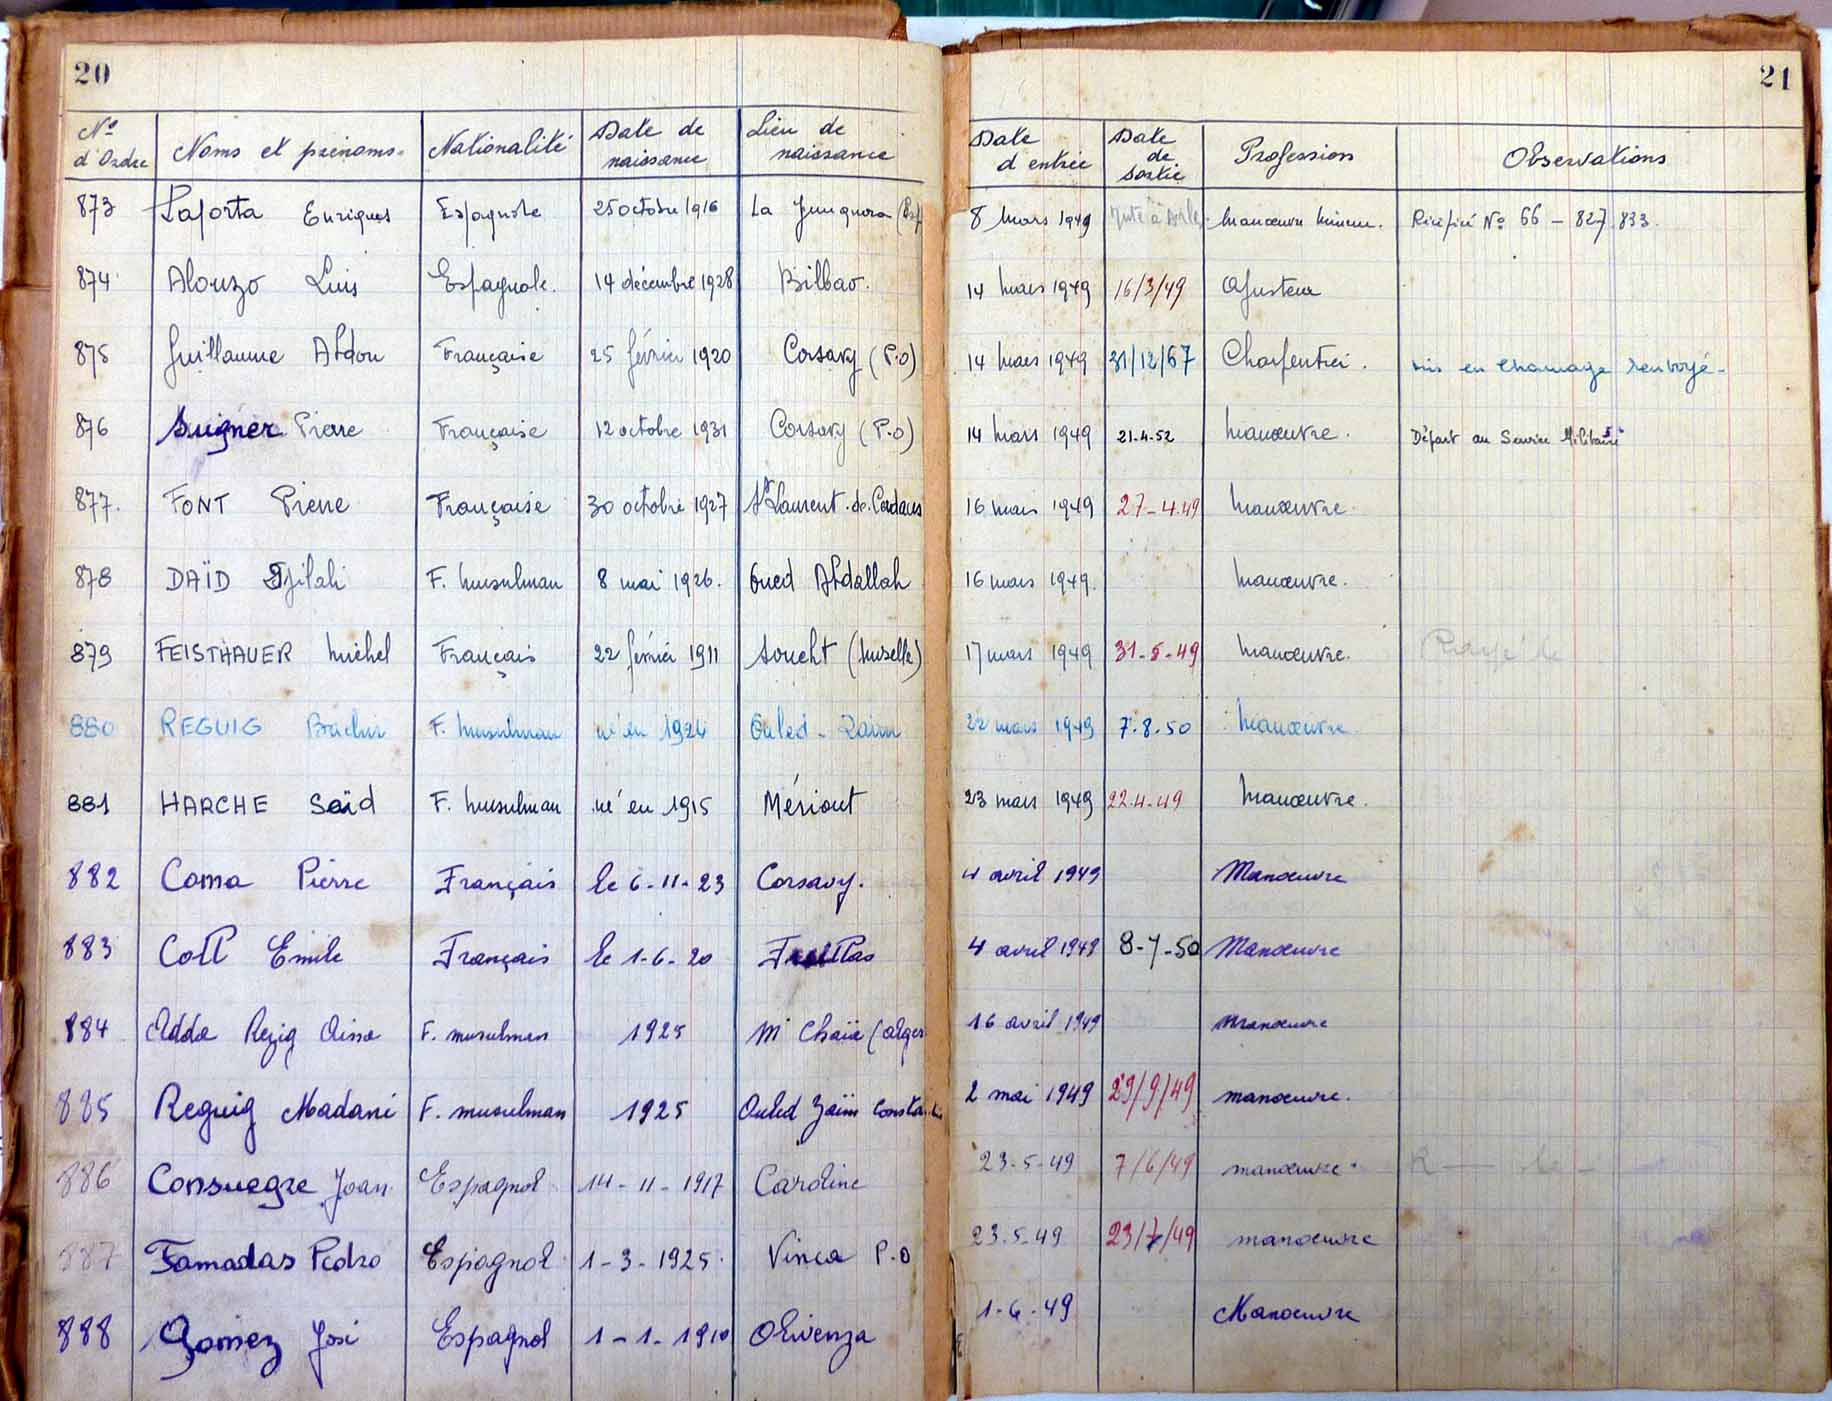 20
21
N° d'Ordre Noms et prénoms Nationalité Date de naissance Lieu de naissance Date d'entrée Date de sortie Profession Observations
873 Laporta Enriques Espagnole 25 octobre 1916 La Junquera (Esp 8 mars 1949 manœuvre mineur. Récépissé N° 66 - 827.833.
874 Alonzo Luis Espagnole. 14 décembre 1928 Bilbao. 14 mars 1949 16/3/49 Ajusteur
875 Guillaume Abdon Française 25 février 1920 Corsavy (P.O) 14 mars 1949 31/12/67 Charpentier. mis en chomage renvoyé-
876 Suigner Pierre Française 12 octobre 1931 Corsavy (P.O) 14 mars 1949 21.4.52 manœuvre. Départ au Service Militaire
877. FONT Pierre Française 30 octobre 1927 St Laurent.de.Cerdans 16 mars 1949 27-4.49 manœuvre.
878 DAÏD Djilali F. musulman 8 mai 1926. Oued Abdallah 16 mars 1949. manœuvre.
879 FEISTHAUER Michel Français 22 février 1911 Soucht (Moselle) 17 mars 1949 31-5-49 manœuvre. Rayé le
880 REGUIG Bachir F. musulman né en 1924 Ouled-Zaim 22 mars 1949 7.8.50 manœuvre
881 HARCHE Saïd F. musulman né en 1915 Mériout 23 mars 1949 22.4.49 manœuvre.
882 Coma Pierre Français le 6-11-23 Corsavy. 4 avril 1949 Manœuvre
883 Coll Emile Français le 1-6-20 4 avril 1949 8-7-50 Manœuvre
884 Adda Rezig Aissa F. musulman 1925 M'Chaïa (Alger 16 avril 1949 manœuvre
885 Reguig Madani F. musulman 1925 Ouled Zaïm Constantin 2 mai 1949 29/9/49 manœuvre.
886 Consuegre Joan Espagnol 14-11-1917 Caroline 23-5-49 7/6/49 manœuvre.
887 Famadas Pedro Espagnol 1-3-1925. Vinca P.O 23.5.49 23/7/49 manœuvre
888 Gomez José Espagnol 1-1-1910 Olivenza 1-6-49 Manœuvre